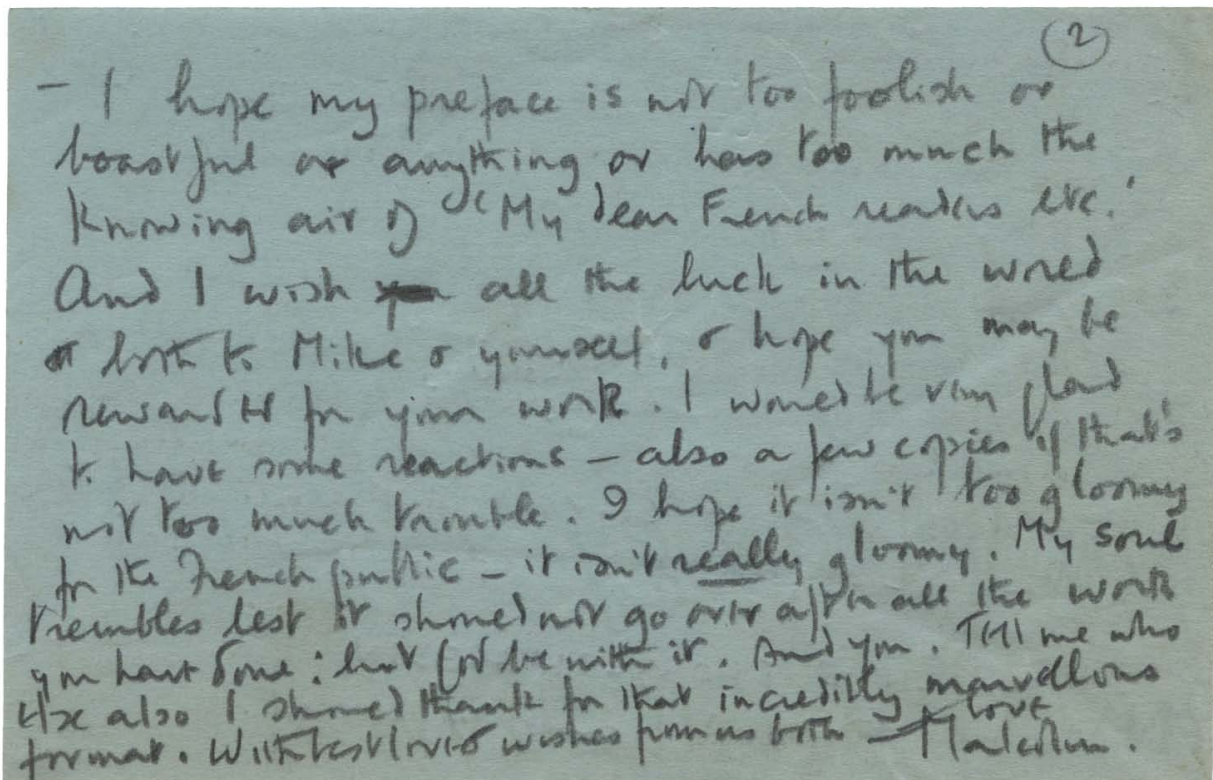 (2)
– I hope my preface is not too foolish or
boastful or anything or has too much the
knowing air of "My dear French readers etc.'
And I wish you all the luck in the world
both to Mike & yourself, & hope you may be
rewarded for your work. I would be very glad
to have some reactions – also a few copies if that's
not too much trouble. I hope it isn't too gloomy
for the French public – it isn't really gloomy. My soul
trembles lest it should not go over after all the work
you have done: but God be with it. And you. Tell me who
else also I should thank for that incredibly marvellous
format. With best love & wishes from us both – love
Malcolm.